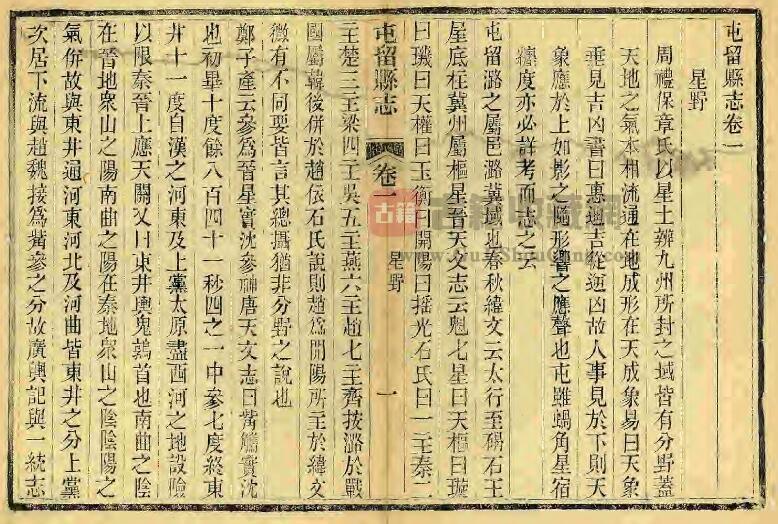 屯留縣志卷一
星野
周禮保章氏以星土辨九州所封之域皆有分野蓋
天地之氣本相流通在地成形在天成象易曰天象
垂見吉凶書曰惠迪吉從逆凶故人事見於下則天
象應於上如影之隨形響之應聲也屯雖蝸角星宿
纏度亦必詳考而志之云
屯留潞之屬邑潞冀域也春秋緯文云太行至碣石王
屋底柱冀州屬樞星晉天文志云魁七星曰天樞曰璇
曰璣曰天權曰玉衡曰開陽曰搖光石氏曰一主秦二
屯留縣志
卷一
星野
一
主楚三主梁四主吳五主燕六主趙七主齊按潞於戰
國屬韓後併於趙依石氏說則趙為開陽所主於緯文
微有不同要皆言其總攝猶非分野之說也
鄭子產云參為晉星實沈參神唐天文志曰觜觿實沈
也初畢十度餘八百四十一秒四之一中參七度終東
井十一度自漢之河東及上黨太原盡西河之地設險
以限秦晉上應天關又曰東井輿鬼鶉首也南曲之陰
在晉地衆山之陽南曲之陽在秦地衆山之陰陰陽之
氣併故與東井通河東河北及河曲皆東井之分上黨
次居下流與趙魏接為觜參之分故廣輿記與一統志
古籍
古籍收藏網